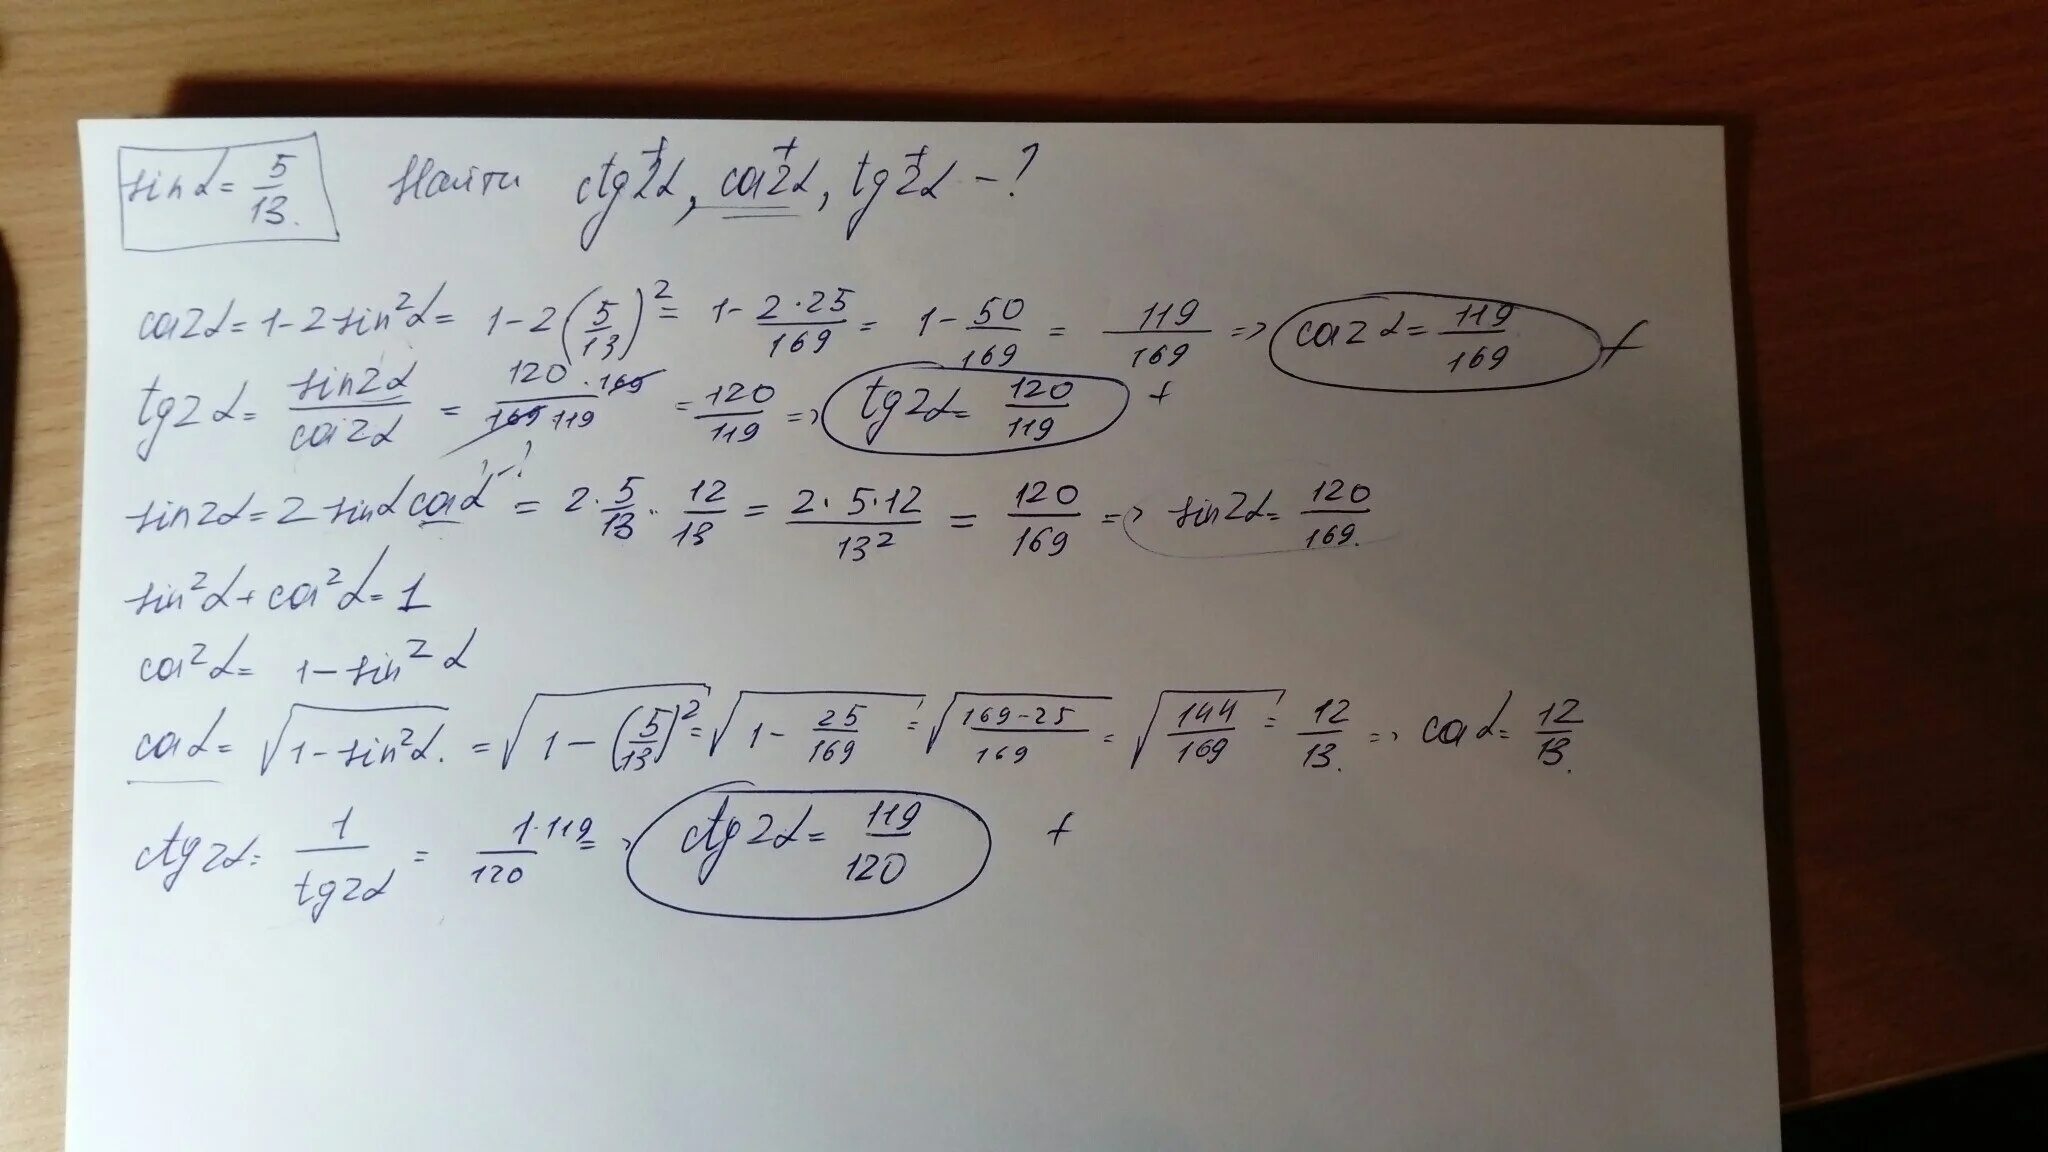 sin α = 5/13. Найти ctg2α, cos2α, tg2α - ?
cos2α = 1 - 2 sin²α = 1 - 2(5/13)² = 1 - 2·25/169 = 1 - 50/169 = 119/169 => cos2α = 119/169 +
tg2α = sin2α/cos2α = 120·169/169·119 = 120/119 => tg2α = 120/119 +
sin2α = 2 sinα cosα -? = 2·5/13·12/13 = 2·5·12/13² = 120/169 => sin2α = 120/169.
sin²α + cos²α = 1
cos²α = 1 - sin²α
cosα = √(1 - sin²α) = √(1 - (5/13)²) = √(1 - 25/169) = √(169-25/169) = √(144/169) = 12/13. => cosα = 12/13.
ctg2α = 1/tg2α = 1·119/120 => ctg2α = 119/120 +